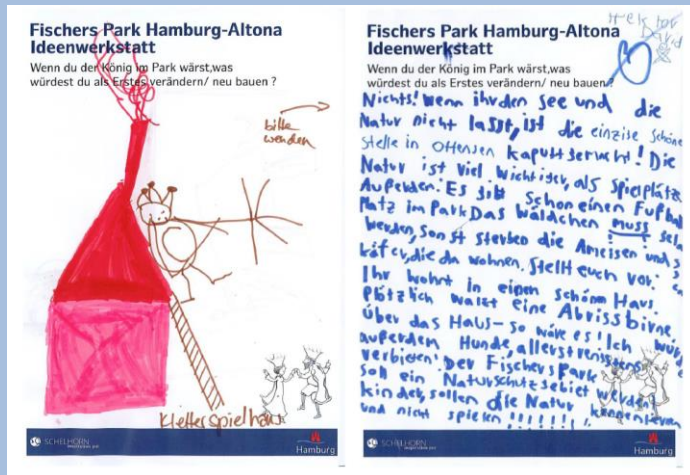 Fischers Park Hamburg-Altona
Ideenwerkstatt
Wenn du der König im Park wärst,was
würdest du als Erstes verändern/ neu bauen ?
bitte
wenden
Kletterspielhaus
SCHELHORN
Hamburg
Fischers Park Hamburg-Altona
Ideenwerkstatt
David
Wenn du der König im Park wärst,was
würdest du als Erstes verändern/ neu bauen?
Nichts! Wenn ihr den See und die
Natur nicht lasst, ist die einzige schöne
Stelle in Ottensen kaputtgemacht! Die
Natur ist viel wichtiger, als Spielplätze
Außerdem: Es gibt schon einen Fußball
Platz im Park Das Wäldchen muss
werden, sonst sterben die Ameisen und
käfer, die da wohnen. Stellt euch vor:
Ihr wohnt in einen schönen Haus.
Plötzlich walzt eine Abrissbirne
über das Haus- so wäre es! Ich würde
außerdem Hunde, allerstrengstens
verbieten! Der Fischers Park
soll ein Naturschutzgebiet werden
kinder sollen die Natur kennenlernen
und nicht spielen !!!!!!!
SCHELHORN
Hamburg